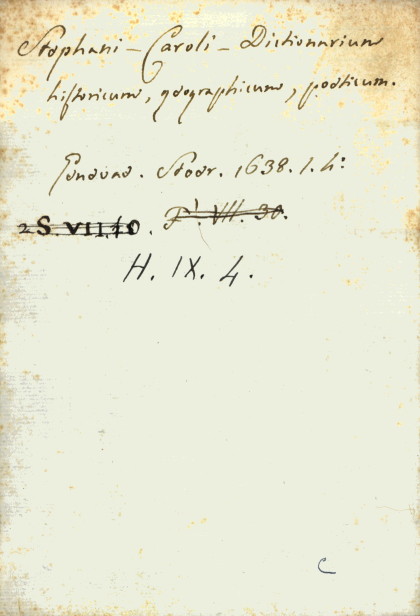 Stephani - Caroli - Dictionarium
historicum, geographicum, poeticum.
Genevae. Stoer. 1638. 1. 4º
2S.VII.10. F¹. VII. 30.
H. IX. 4.
C